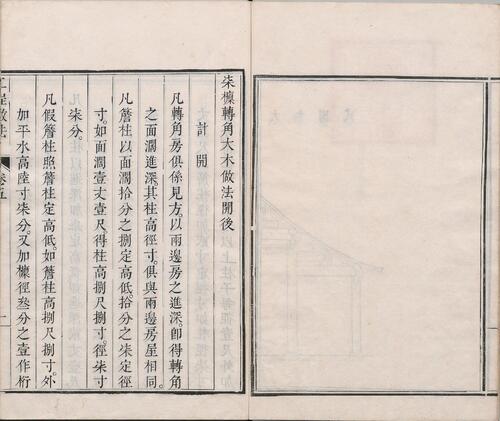 柒檁轉角大木做法開後
計開
凡轉角房俱係見方。以兩邊房之進深。卽得轉角
之面濶進深。其柱高徑寸。俱與兩邊房屋相同。
凡簷柱以面濶拾分之捌定高低。拾分之柒定徑
寸。如面濶壹丈壹尺。得柱高捌尺捌寸。徑柒寸
柒分。
凡假簷柱照簷柱定高低。如簷柱高捌尺捌寸。外
加平水高陸寸柒分。又加檁徑叁分之壹作桁
工程做法
卷五
一